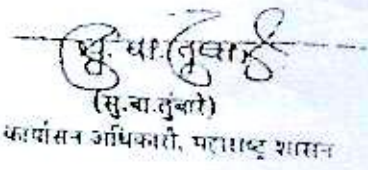 सु. बा. तुंबारे
(सु.बा.तुंबारे)
कार्यासन अधिकारी, महाराष्ट्र शासन